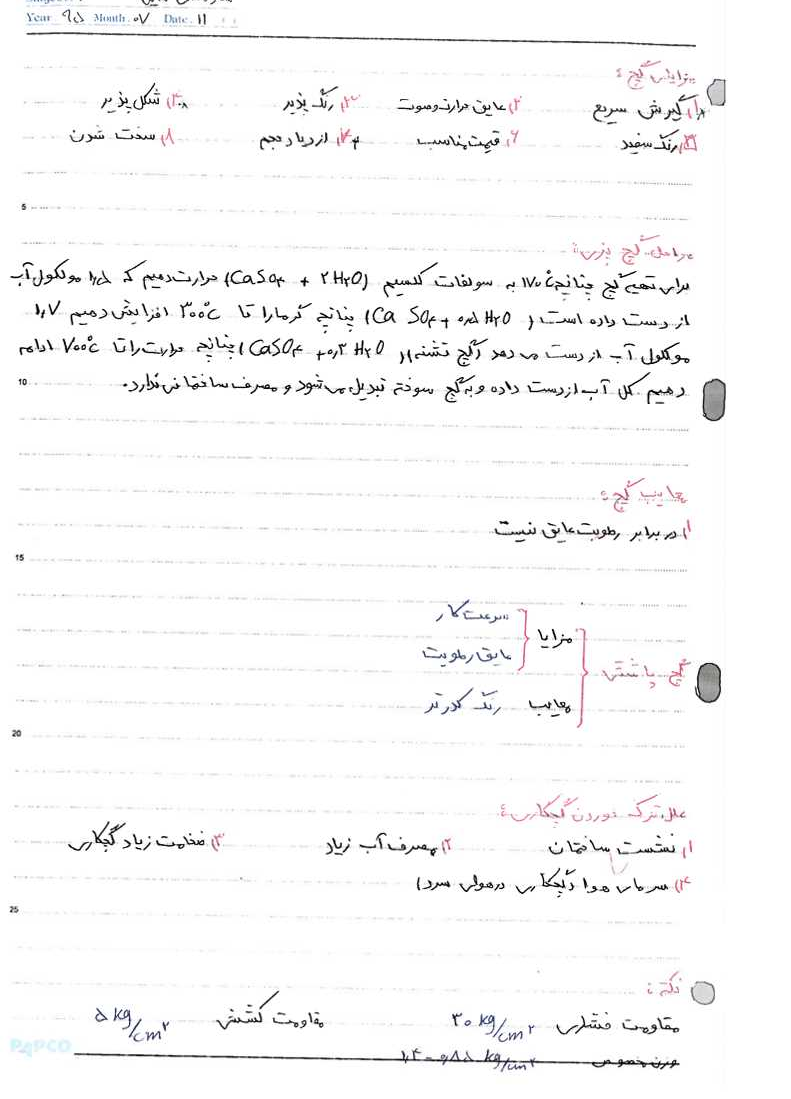 Year ۹۵ Month. ۰۷ Date. ۱۱
مزایای گچ :
۱) گیرش سریع ۲) عایق حرارت و صوت ۳) رنگ پذیر ۴) شکل پذیر
۵) رنگ سفید ۶) قیمت مناسب ۷) ازدیاد حجم ۸) سخت شدن
5
مراحل گچ پزی :
برای تهیه گچ چنانچه ۱۷۰°C به سولفات کلسیم (CaSO۴ + ۲H۲O) حرارت دهیم که ۱٫۵ مولکول آب
از دست داده است ( Ca SO۴ + ۰٫۵ H۲O) چنانچه گرما را تا ۳۰۰°C افزایش دهیم ۱٫۷
مولکول آب از دست می دهد (گچ تشنه)( CaSO۴ + ۰٫۳ H۲O) چنانچه حرارت را تا ۷۰۰°C ادامه
10
دهیم کل آب از دست داده و به گچ سوخته تبدیل می شود و مصرف ساختمانی ندارد.
معایب گچ :
۱) در برابر رطوبت عایق نیست
15
سرعت کار
مزایا
عایق رطوبت
گچ پاششی
معایب رنگ کدرتر
20
علل ترک خوردن گچکاری :
۱) نشست ساختمان ۲) مصرف آب زیاد ۳) ضخامت زیاد گچکاری
۴) سرمای هوا (گچکاری در هوای سرد)
25
نکته :
مقاومت فشاری ۳۰ kg/cm۲ مقاومت کششی ۵ kg/cm۲
PAPCO
وزن مخصوص kg/cm۲